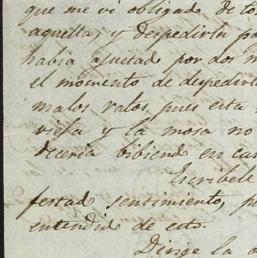 que me vi obligado de to
aquella, y despedirla po
habia ajustado por dos m
el momento de despedirl
malos ratos, pues esta
vieja y la mosa no
deceria bibiend en ca
Escribele
festad sentimiento, p
entendid de esto.
Dirige la a